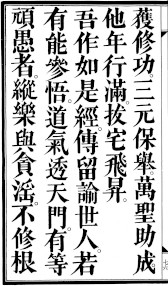 獲修功。三元保舉。萬聖助成
他年行滿。拔宅飛昇。
吾作如是經。傳留諭世人。若
有能參悟。道氣透天門。有等
頑愚者。縱樂與貪淫。不修根